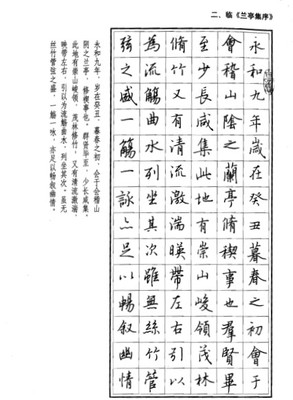 二、临《兰亭集序》
永和九年歲在癸丑暮春之初會于
會稽山陰之蘭亭脩禊事也羣賢畢
至少長咸集此地有崇山峻領茂林
脩竹又有清流激湍暎帶左右引以
為流觴曲水列坐其次雖無絲竹管
弦之盛一觴一詠亦足以暢叙幽情
永和九年，岁在癸丑，暮春之初，会于会稽山
阴之兰亭，修禊事也。群贤毕至，少长咸集。
此地有崇山峻领，茂林修竹，又有清流激湍，
映带左右，引以为流觞曲水，列坐其次。虽无
丝竹管弦之盛，一觞一咏，亦足以畅叙幽情。